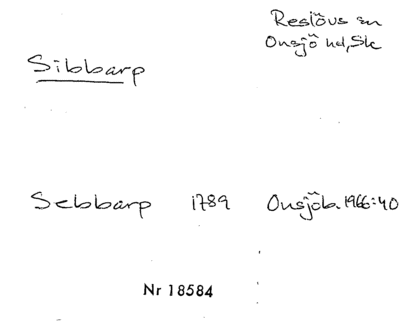 Reslövs sn
Onsjö hd, Sk
Sibbarp
Sebbarp 1789 Onsjöb. 1966:40
Nr 18584